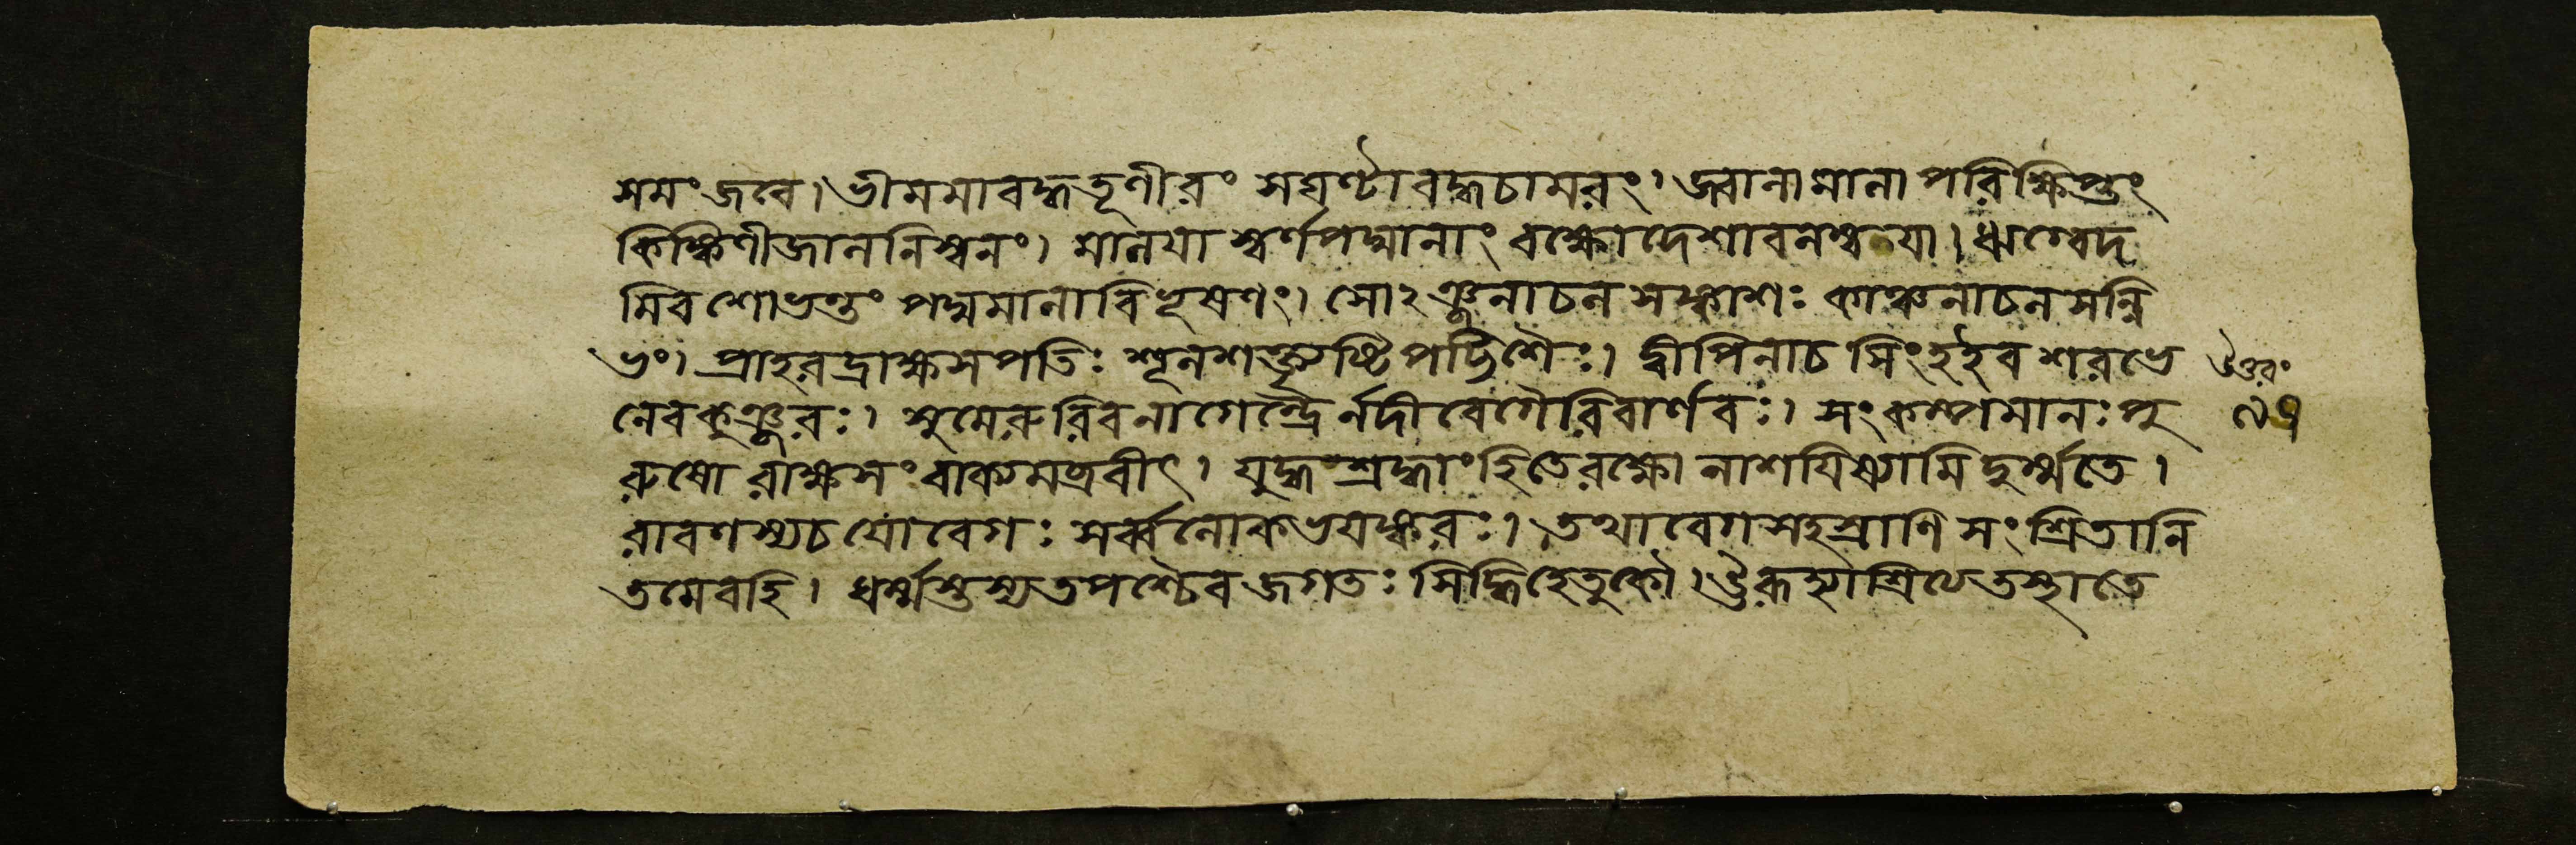 সমং জবে। ভীমমাবদ্ধতূণীরং সঘণ্টাবদ্ধচামরং। জ্বালামালাপরিক্ষিপ্তং
কিঙ্কিণীজালনিস্বনং। মালয়া স্বর্ণপদ্মানাং বক্ষোদেশাবলম্ব্যয়া। ঋগ্বেদ
মিব শোভন্তং পদ্মমালাবিভূষণং। সোঽঞ্জনাচলসঙ্কাশঃ কাঞ্চনাচলসন্নি
ভং। প্রাহরদ্রাক্ষসপতিঃ শূলশক্ত্যৃষ্টিপট্টিশৈঃ। দ্বীপিনাচ সিংহইব শরভে
নেবকুঞ্জরঃ। সুমেরুরিবনাগেন্দ্রৈর্নদীবেগৈরিবার্ণবঃ। সংকম্পমানঃ পু
রুষো রাক্ষসং বাক্যমব্রবীৎ। যুদ্ধশ্রদ্ধাংহিতেরক্ষো নাশয়িষ্যামি দুর্ম্মতে।
রাবণস্যচ যো বেগঃ সর্ব্বলোকভয়ঙ্করঃ। তথাবেগসহস্রাণি সংশ্রিতানি
তমেবহি। ধর্ম্মস্তস্যতপশ্চৈব জগতঃ সিদ্ধিহেতুকৌ। ঊরূহ্যাশ্রিত্যেতস্থাতে
উত্তরং
৫৭